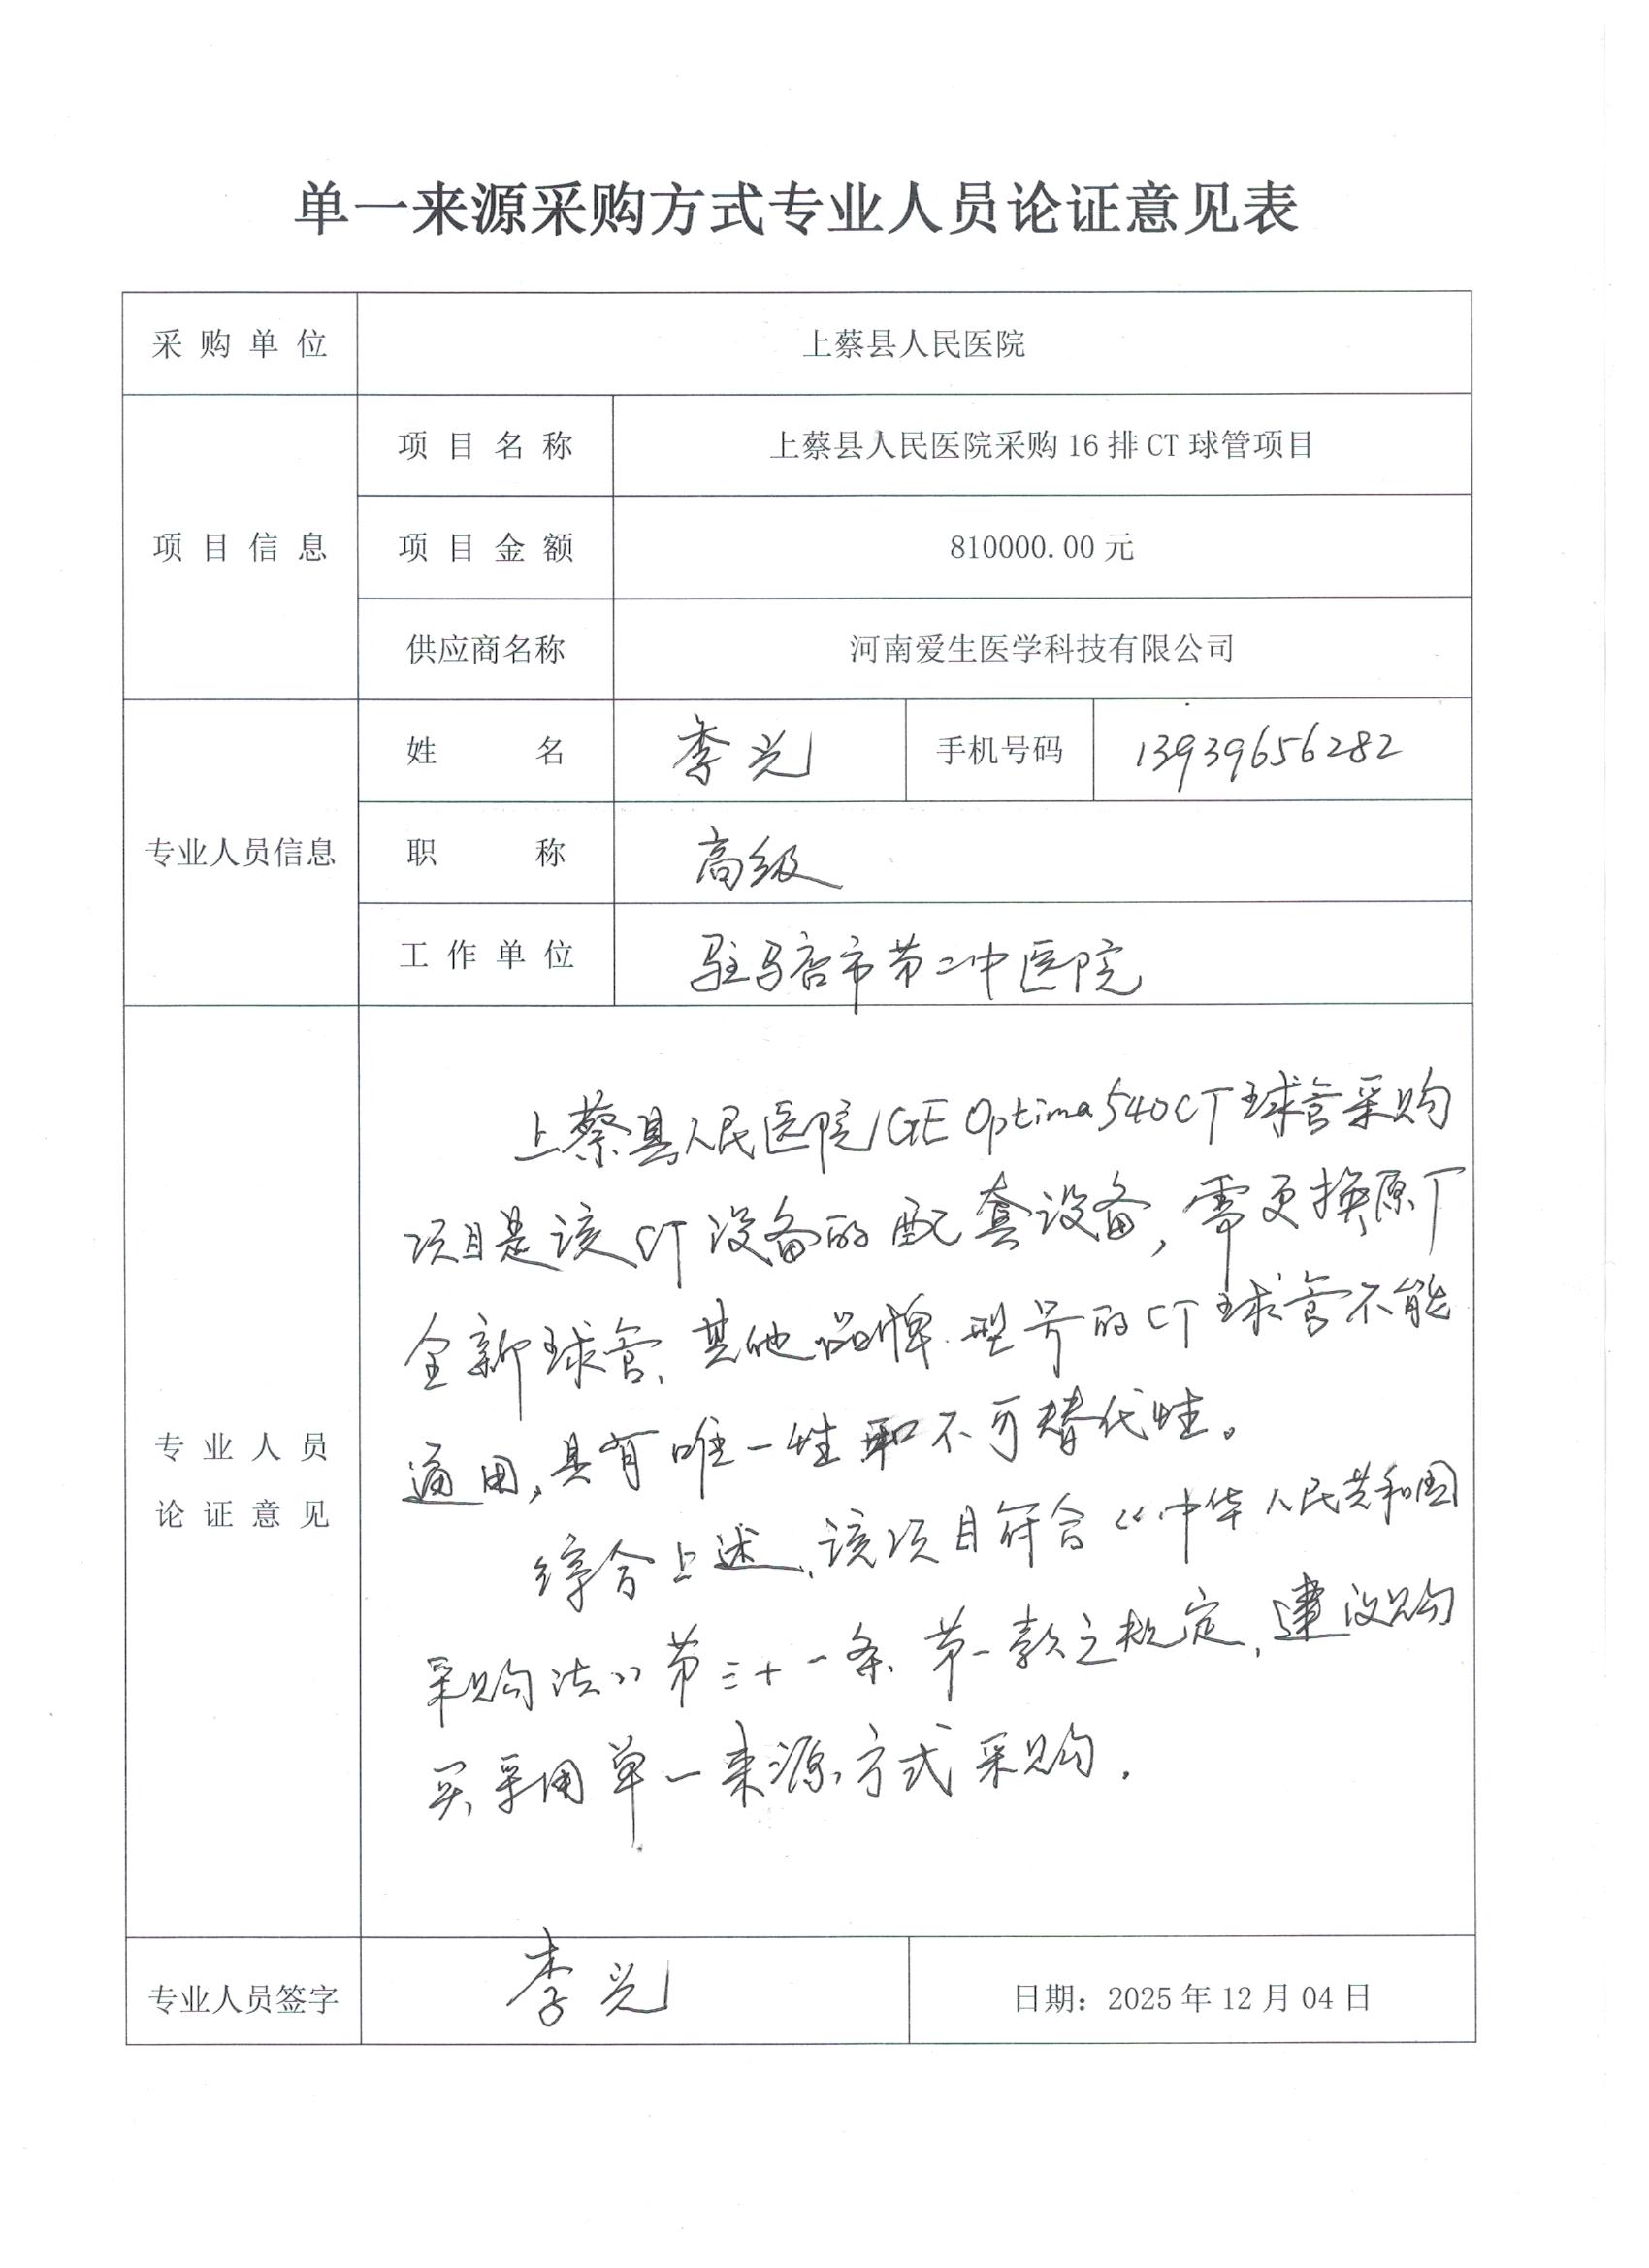 单一来源采购方式专业人员论证意见表
采购单位
上蔡县人民医院
项目信息
项目名称
上蔡县人民医院采购16排CT球管项目
项目金额
810000.00元
供应商名称
河南爱生医学科技有限公司
专业人员信息
姓名
李光
手机号码
13939656282
职称
高级
工作单位
驻马店市第二中医院
专业人员
论证意见
上蔡县人民医院GE Optima 540CT球管采购
项目是该CT设备的配套设备,需更换原厂
全新球管、其他品牌.型号的CT球管不能
通用,具有唯一性和不可替代性。
综合上述、该项目符合《中华人民共和国
采购法》第三十一条、第一款之规定、建议购
买采用单一来源方式采购.
专业人员签字
李光
日期：2025年12月04日